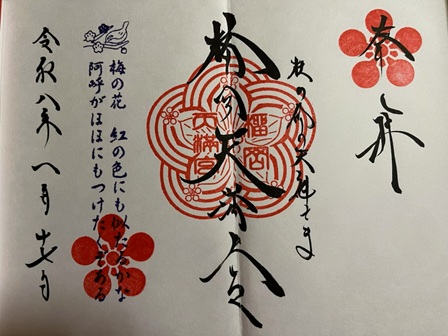 奉拝
杜の都の天神さま
榴岡天満宮
榴岡
天満宮
梅の花 紅の色にも似たるかな
阿呼がほほにもつけたくぞある
令和八年一月十七日